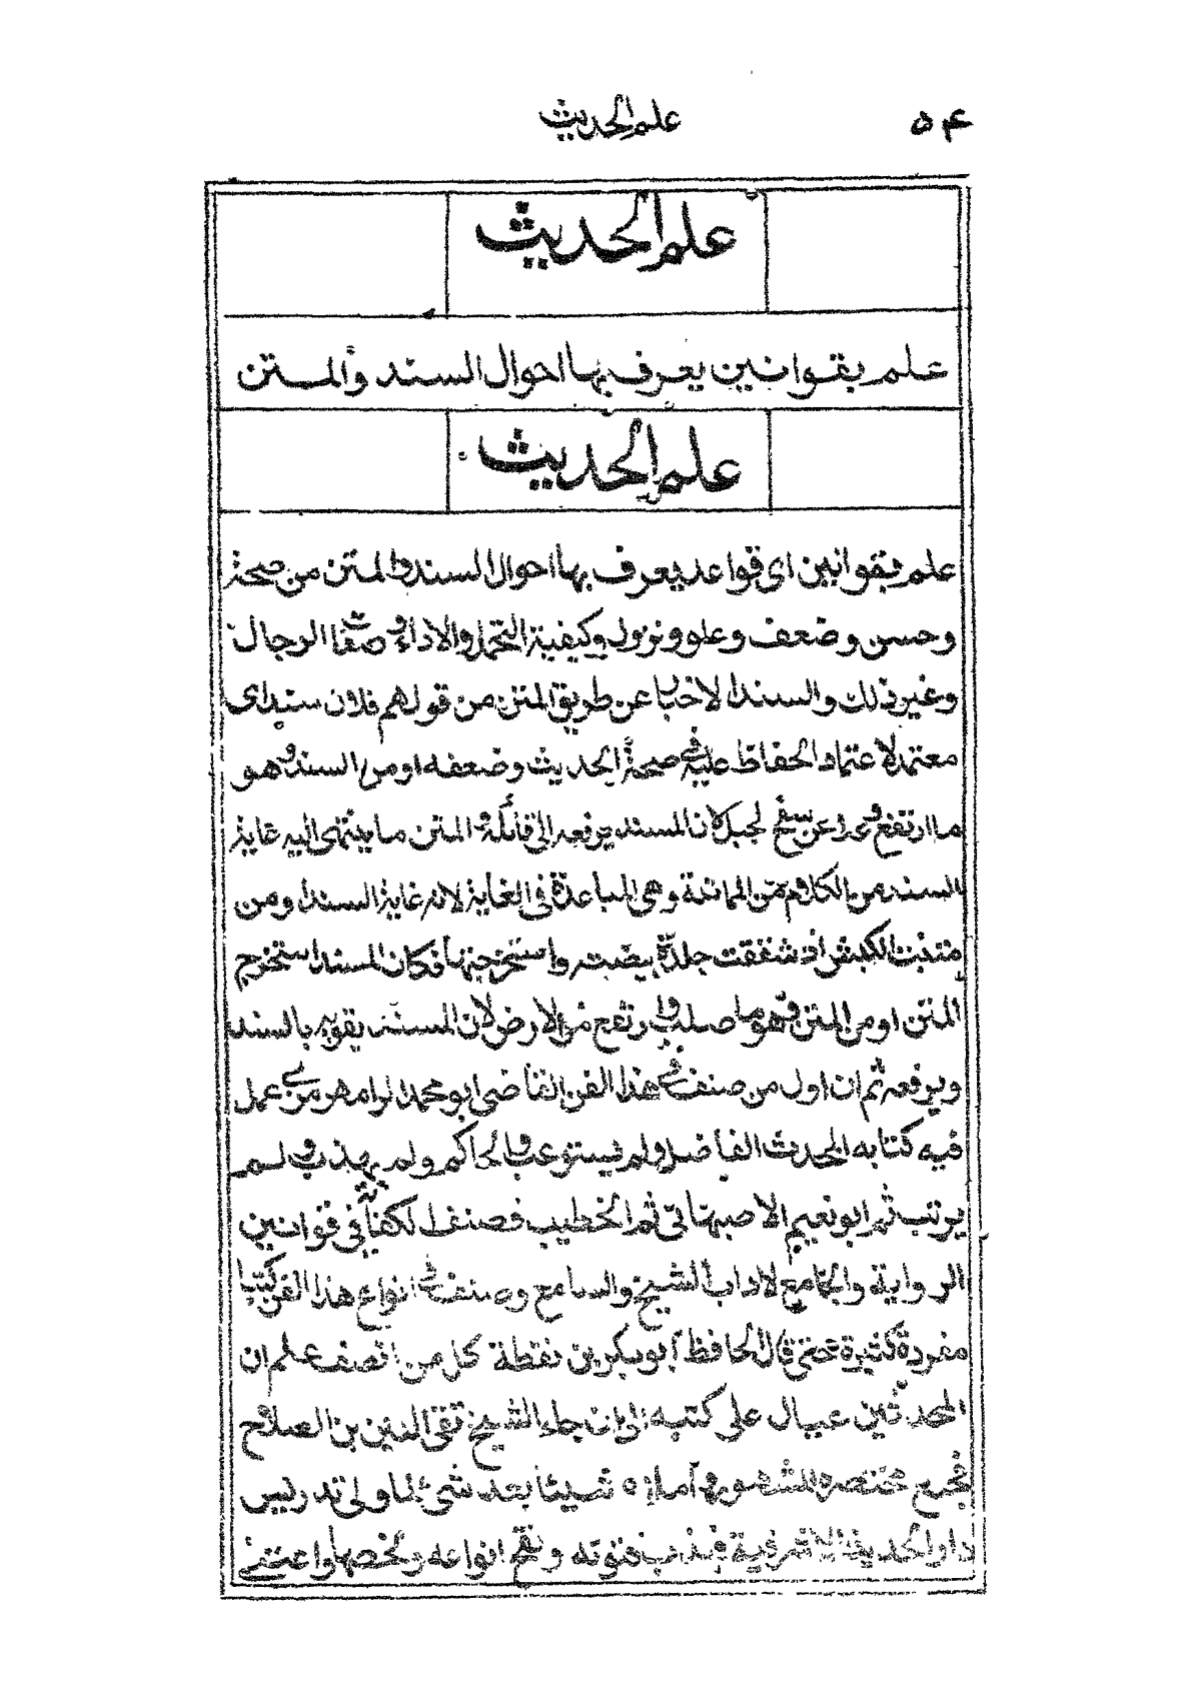 علم الحديث ٥٤
علم الحديث
علم بقوانين يعرف بها احوال السند والمتن
علم الحديث
علم بقوانين اى قواعد يعرف بها احوال السند والمتن من صحة
وحسن وضعف وعلو ونزول وكيفية التحمل والاداء وصفات الرجال
وغير ذلك والسند الاخبار عن طريق المتن من قولهم فلان سند اى
معتمد لاعتماد الحفاظ عليه فى صحة الحديث وضعفه او من السند وهو
ما ارتفع وعلا عن سفح الجبل لان المسند يرفعه الى قائله والمتن ما ينتهى اليه غاية
السند من الكلام من المماتنة وهى المباعدة فى الغاية لانه غاية السند او من
متنت الكبش اذ شققت جلدة بيضته واستخرجتها فكان المسند استخرج
المتن او من المتن وهو ما صلب وارتفع من الارض لان المسند يقويه بالسند
ويرفعه ثم ان اول من صنف فى هذا الفن القاضى ابو محمد الرامهرمزى عمل
فيه كتابه المحدث الفاضل ولم يستوعب والحاكم ولم يهذب ولم
يرتب ثم ابو نعيم الاصبهانى ثم الخطيب فصنف الكفاية فى قوانين
الرواية والجامع لاداب الشيخ والسامع وصنف فى انواع هذا الفن كتبا
مفردة كثيرة حتى قال الحافظ ابو بكر بن نقطة كل من انصف علم ان
المحدثين عيال على كتبه الى ان جاء الشيخ تقى الدين بن الصلاح
فجمع مختصره المشهور واملاه شيئا بعد شئ لما ولى تدريس
دار الحديث الاشرفية فهذب فنونه ونقح انواعه ولخصها واعتنى